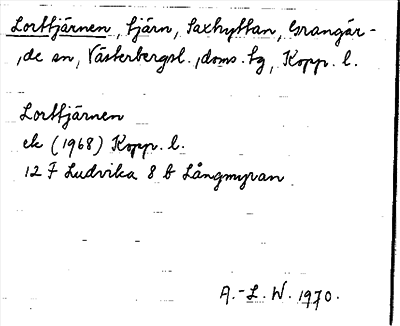 Lorttjärnen, tjärn, Saxhyttan, Grangär-
de sn, Västerbergsl., doms. tg, Kopp. l.
Lorttjärnen
ek (1968) Kopp. l.
12 F Ludvika 8 b Långmyran
A.-L. W. 1970.